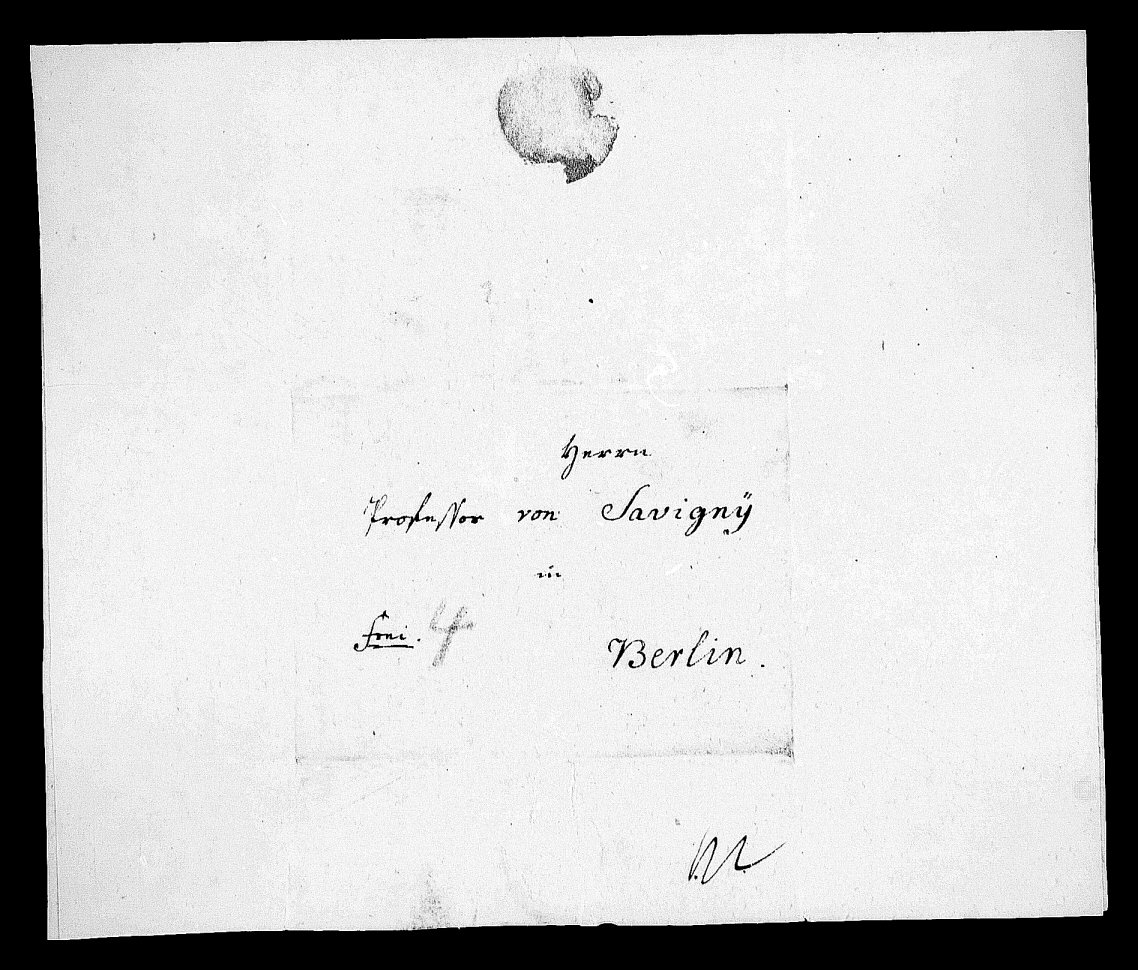 Herrn
Professor von Savignÿ
in
frei. 4
Berlin.